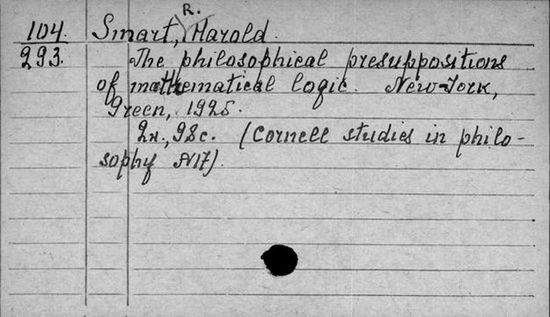 104. Smart, R. Harold.
293. The philosophical presuppositions
of mathematical logic. New-York,
Green, 1925.
2н., 98с. (Cornell studies in philo-
sophy N17).